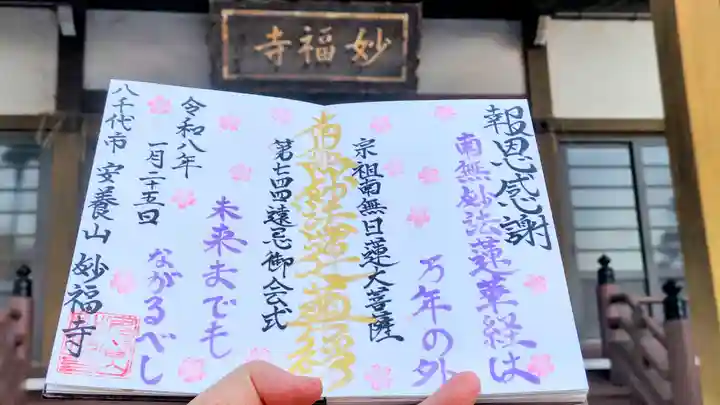 寺福妙
報恩感謝
南無妙法蓮華経は
万年の外
宗祖南無日蓮大菩薩
南無妙法蓮華経
第七四四遠忌御会式
未来までも
ながるべし
令和八年
一月二十五日
八千代市 安養山 妙福寺